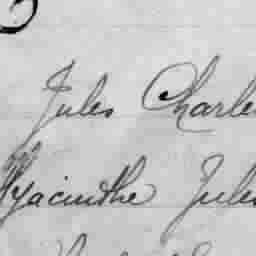 Jules Charles
Hyacinthe Jules